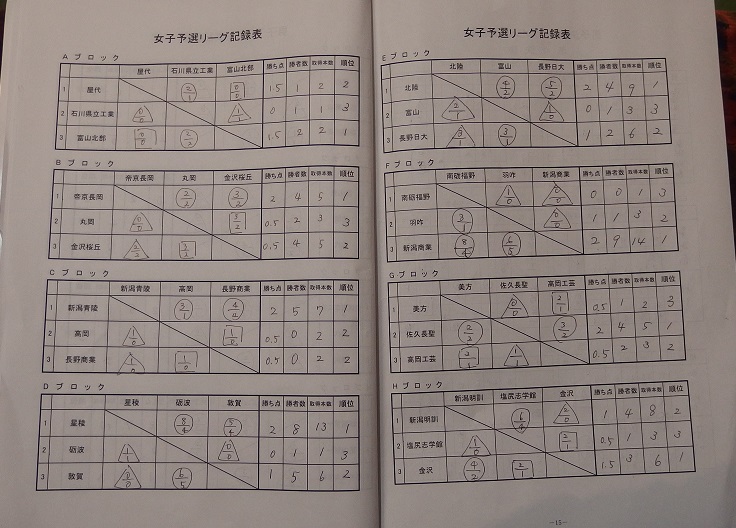 女子予選リーグ記録表
Aブロック
屋代 石川県立工業 富山北部 勝ち点 勝者数 取得本数 順位
1 屋代 2/1 0/0 1.5 1 2 2
2 石川県立工業 0/0 1/1 0 1 1 3
3 富山北部 0/0 2/2 1.5 2 2 1
Bブロック
帝京長岡 丸岡 金沢桜丘 勝ち点 勝者数 取得本数 順位
1 帝京長岡 2/2 3/2 2 4 5 1
2 丸岡 0/0 3/2 0.5 2 3 3
3 金沢桜丘 2/2 3/2 0.5 4 5 2
Cブロック
新潟青陵 高岡 長野商業 勝ち点 勝者数 取得本数 順位
1 新潟青陵 3/1 4/ 2 5 7 1
2 高岡 1/0 1/0 0.5 0 2 2
3 長野商業 1/0 1/0 0.5 0 2 2
Dブロック
星稜 砺波 敦賀 勝ち点 勝者数 取得本数 順位
1 星稜 8/4 5/4 2 8 13 1
2 砺波 1/1 0/0 0 1 1 3
3 敦賀 0/0 6/5 1 5 6 2
女子予選リーグ記録表
Eブロック
北陸 富山 長野日大 勝ち点 勝者数 取得本数 順位
1 北陸 4/2 5/2 2 4 9 1
2 富山 2/1 1/0 0 1 3 3
3 長野日大 3/1 3/1 1 2 6 2
Fブロック
南砺福野 羽咋 新潟商業 勝ち点 勝者数 取得本数 順位
1 南砺福野 1/0 0/0 0 0 1 3
2 羽咋 3/1 0/0 1 1 3 2
3 新潟商業 8/4 6/5 2 9 14 1
Gブロック
美方 佐久長聖 高岡工芸 勝ち点 勝者数 取得本数 順位
1 美方 0/0 2/1 0.5 1 2 3
2 佐久長聖 2/2 3/2 2 4 5 1
3 高岡工芸 2/1 1/1 0.5 2 3 2
Hブロック
新潟明訓 塩尻志学館 金沢 勝ち点 勝者数 取得本数 順位
1 新潟明訓 6/4 2/0 1 4 8 2
2 塩尻志学館 1/0 2/1 0.5 1 3 3
3 金沢 4/2 2/1 1.5 3 6 1
−15−